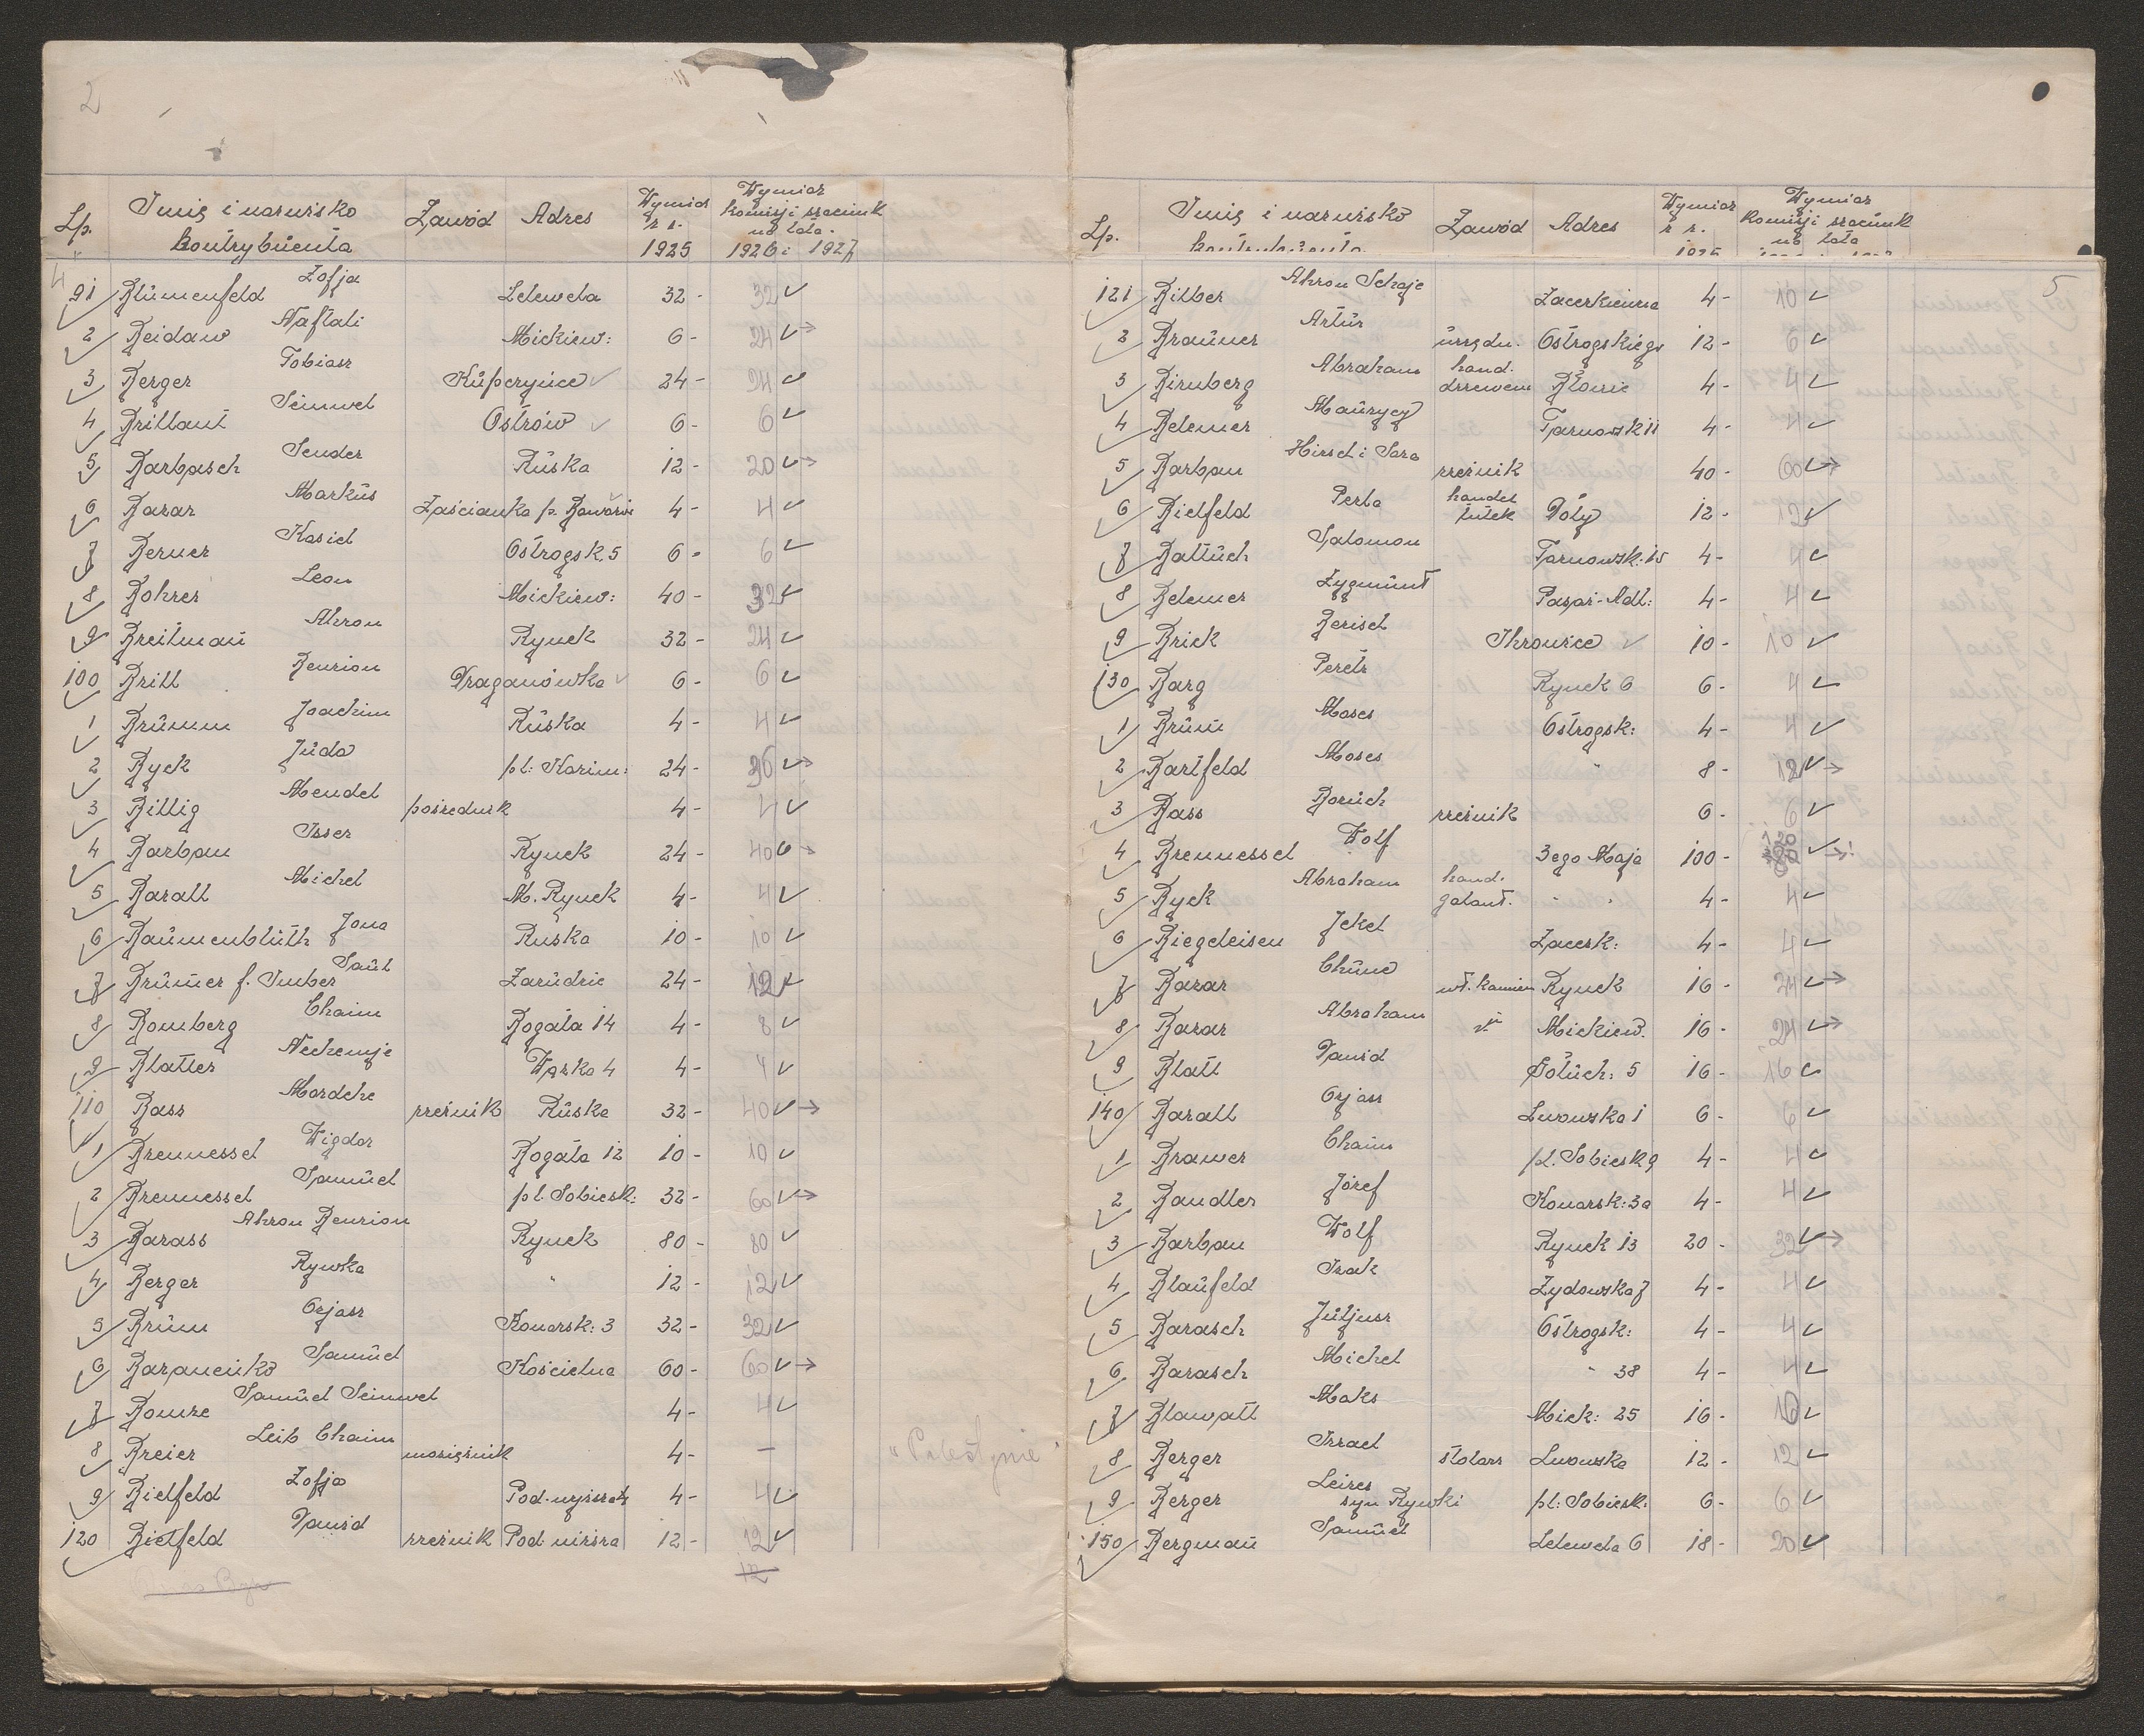 2
Lp. Imię i nazwisko kontrybuenta Zawód Adres Wymiar z r. 1925 Wymiar komisji szacunk na lata 1926 i 1927
4
91 Blumenfeld Zofja Lelewela 32- 32
2 Beidaw Naftali Mickiew: 6- 24
3 Berger Tobiasz Kupczyńce 24- 24
4 Brillant Seinwel Ostrów 6- 6
5 Barbasch Sender Ruska 12- 20
6 Bazar Markus Zaścianka p. 4- 4
7 Berner Kasiel Ostrogsk. 5 6- 6
8 Bohrer Leon Mickiew: 40- 32
9 Breitman Ahron Rynek 32- 24
100 Brill Benzion Draganówka 6- 6
1 Brumm Joachim Ruska 4- 4
2 Byck Juda pl: Kazim: 24- 36
3 Billig Mendel pośrednik 4- 4
4 Barban Isser Rynek 24- 40
5 Baratt Michel M. Rynek 4- 4
6 Baumenblüth Jona Ruska 10- 10
7 Brumer f. Imber Saul Zarudzie 24- 12
8 Bomberg Chaim Rogata 14 4- 8
9 Blatter Nechemje Wązka 4 4- 4
110 Bass Mordche rzeźnik Ruska 32- 40
1 Brennessel Wigdor Rogata 12 10- 10
2 Brennessel Samuel pl. Sobiesk: 32- 60
3 Barass Ahron Benzion Rynek 80- 80
4 Berger Rywka " 12- 12
5 Brum Eljasz Konarsk: 3 32- 32
6 Baraneńko Samuel Kościelna 60- 60
7 Bomze Samuel Seinwel 4- 4
8 Breier Leib Chaim mosiężnik 4- — "Palestynie"
9 Bielfeld Zofja 4- 4
120 Bielfeld Dawid rzeźnik Pod. 12- 12
12
Lp. Imię i nazwisko kontrybuenta Zawód Adres Wymiar z r. 1925 Wymiar komisji szacunk na lata
5
121 Bilber Ahron Schaje Zacerkiewna 4- 10
2 Brauner Artur urzędn. Ostrogskiego 12- 6
3 Birnberg Abraham hand. drzewem Błonie 4- 4
4 Belemer Maurycy Tarnowsk 11 4- 4
5 Barban Hirsch i Sara rzeźnik 40- 60
6 Bielfeld Perla handel tutek Doły 12- 12
7 Balluch Salomon Tarnowsk: 15 4- 4
8 Belemer Zygmunt Pasaż-Adl: 4- 4
9 Brick Berisch Ihrowice 10- 10
130 Barg Peretz Rynek 6 6- 4
1 Brum Moses Ostrogsk: 4- 4
2 Bartfeld Moses " 8- 12
3 Bass Boruch rzeźnik 6- 6
4 Brennessel Wolf 3ego Maja 100-
5 Byck Abraham hand. galant. " " 4- 4
6 Biegeleisen Jekel Zacerk: 4- 4
7 Bazar Chune wł. kamien Rynek 16- 24
8 Bazar Abraham " Mickiew. 16- 24
9 Blatt Dawid Gołuch: 5 16- 16
140 Baratt Eljasz Lwowska 1 6- 6
1 Brawer Chaim pl. Sobiesk 9 4- 4
2 Bandler Józef Konarsk: 3a 4- 4
3 Barban Wolf Rynek 13 20- 32
4 Blaufeld Izak Zydowska 7 4- 4
5 Barasch Juljusz Ostrogsk: 4- 4
6 Barasch Michel " 38 4- 4
7 Blawatt Maks Mick: 25 16- 16
8 Berger Izrael stolarz Lwowska 12- 12
9 Berger Leizer syn Rywki pl: Sobiesk. 6- 6
150 Bergman Samuel Lelewela 6 18- 20